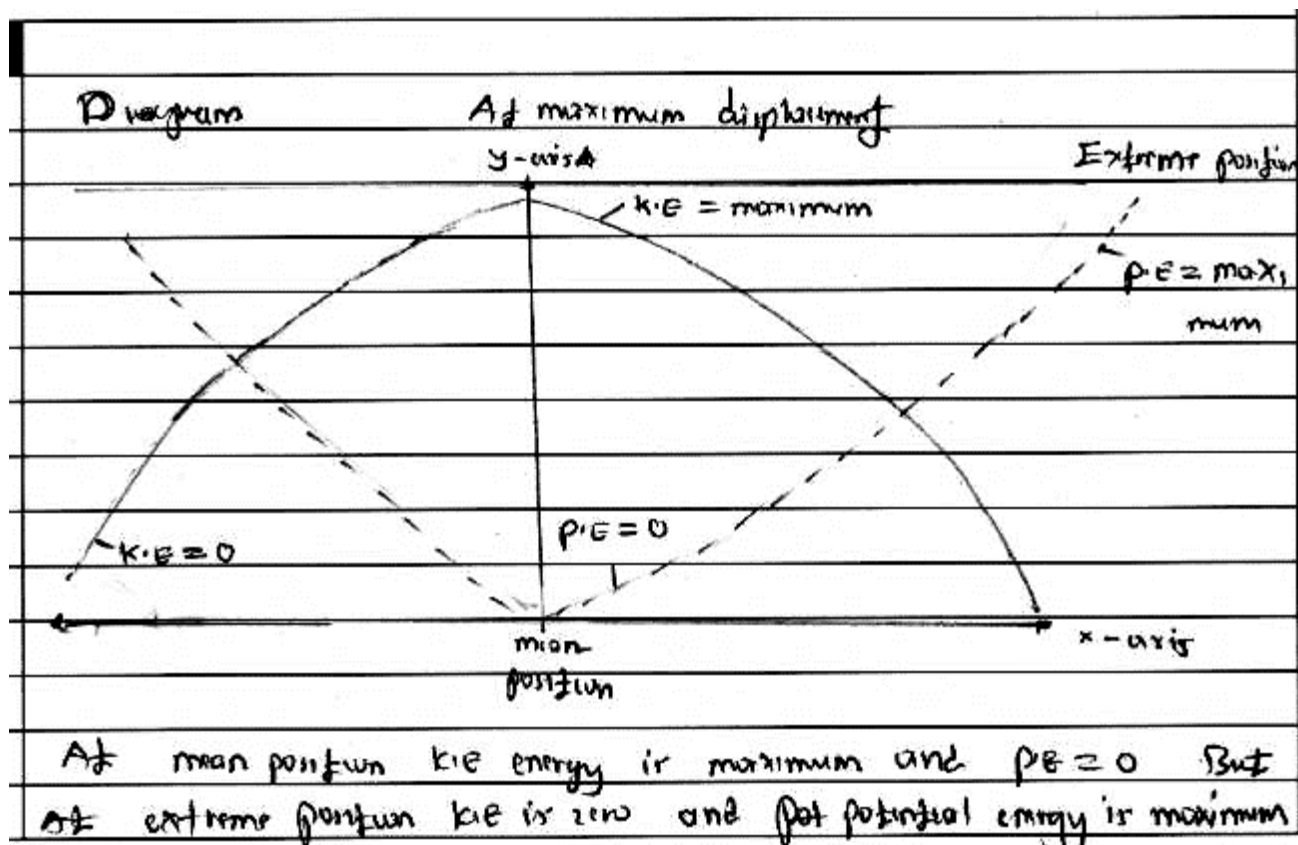 Diagram At maximum displacement
y-axis
Extreme position
K.E = maximum
P.E = maxi
mum
P.E = 0
K.E = 0
x-axis
mean
position
At mean position K.E energy is maximum and P.E = 0 But
At extreme position K.E is zero and pot potential energy is maximum